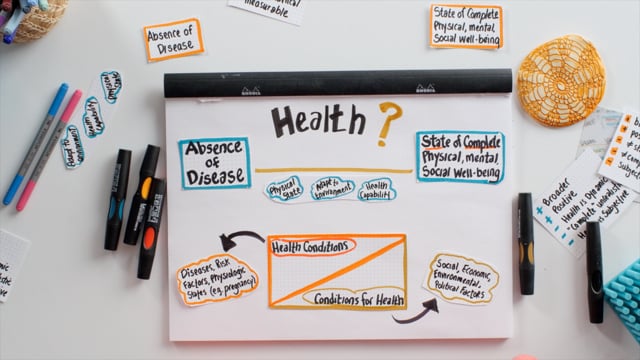 measurable
Absence of
Disease
State of Complete
Physical, mental,
Social well-being
RHODIA
RHODIA
Health ?
Absence
of
Disease
State of Complete
Physical, mental,
Social well-being
Physical
State
Adapt to
Environment
Health
Capability
Physical
State
Health
Capability
Adapt to
Environment
Health Conditions
Conditions for Health
Diseases, Risk
Factors, Physiologic
States (e.g, pregnancy)
Social, Economic,
Environmental,
Political Factors
+ Broader
+ Positive
Health is Dynamic
Complete
Subjective